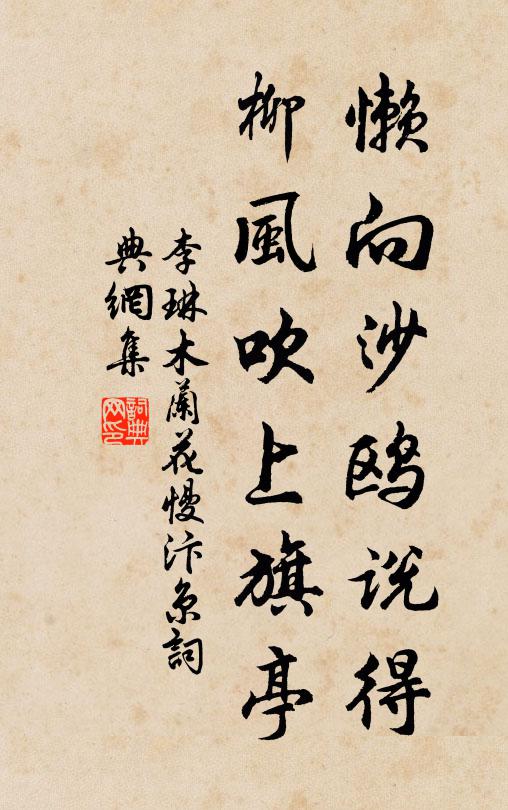 懶向沙鸥説得
柳風吹上旗亭
李琳木蘭花慢汴京詞
典網集
詞典網印